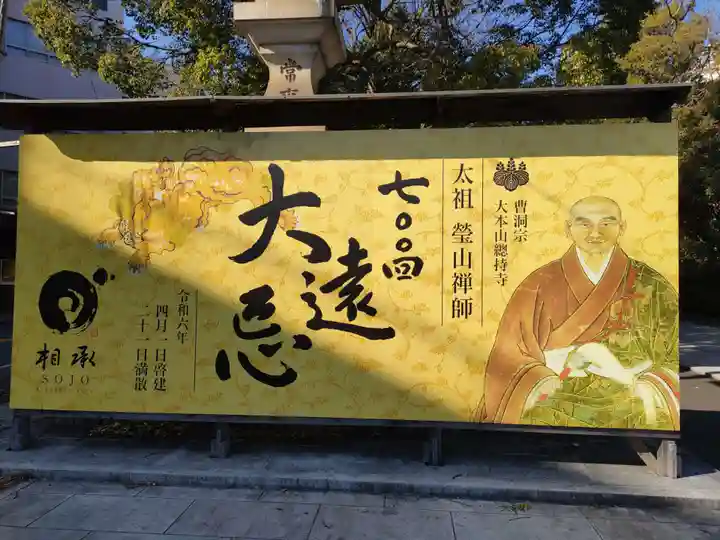 常
曹洞宗
大本山總持寺
太祖 瑩山禅師
七〇〇回
大遠忌
令和六年
四月一日啓建
二十一日満散
相承
SOJO